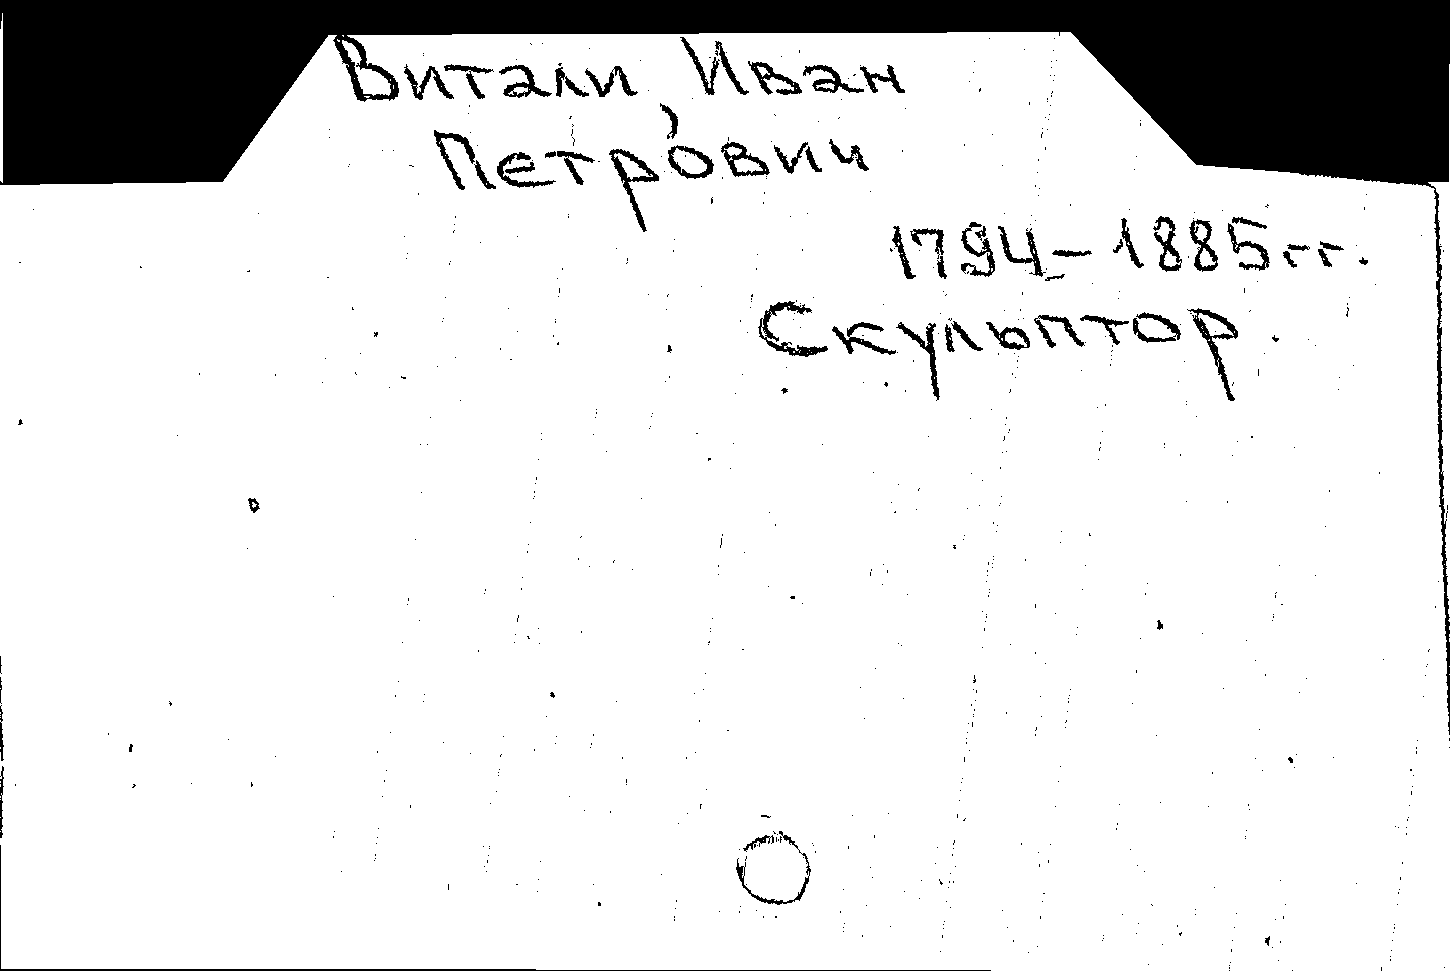 Витали, Иван
Петрович
1794-1885гг.
Скульптор.